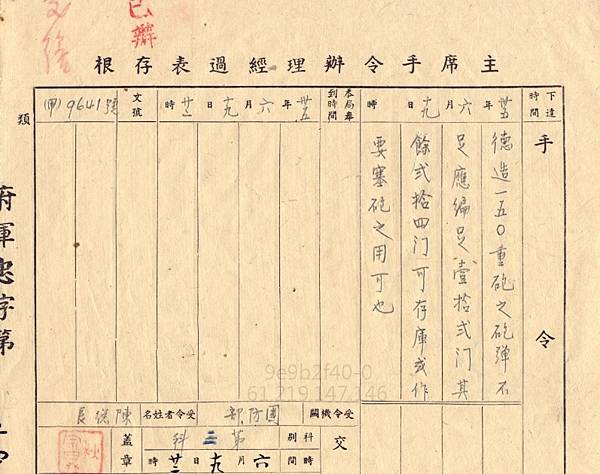 已辦
主席手令辦理經過表存根
下達時間
卅五年六月九日 時
本局奉到時間
卅五年六月九日廿時
文號
(甲)9641號
類
手令
德造一五〇重砲之砲彈不
足應編足壹拾弍门其
餘弍拾四门可存庫或作
要塞砲之用可也
9e9b2f40-0
61.219.147.146
受令機關
國防部
受令者姓名
陳總長
交
科別
第二科
時間
六月九日廿二時
蓋章
府軍忠字第